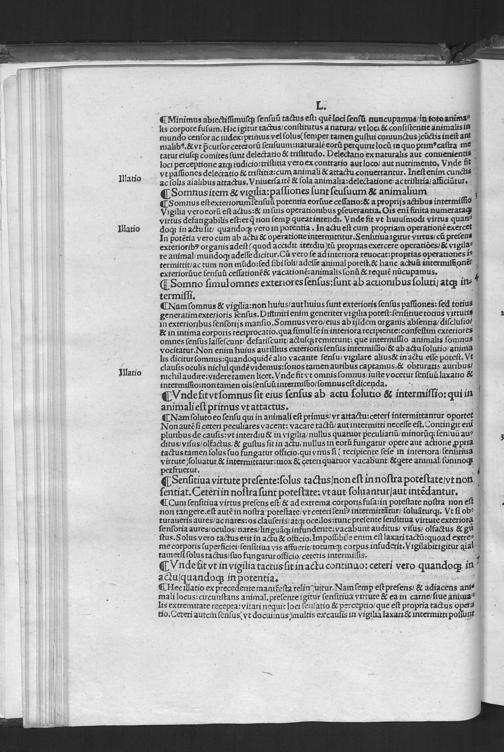 L.
¶Minimus abiectissimusq̃ sensuũ tactus est: quẽ loci sensũ nuncupamus/ in toto anima-
lis corpore fusum. Hic igitur tactus/ constitutus a natura/ vt loci & consistentie animalis in
mundo censor ac iudex: primus vel solus/ semper tamen gustui coniunctus/
& vt p̃cursor ceterorũ sensuum: naturale eorũ perquirit locũ in quo
tatur eiusq̃ comites sunt delectatio & tristitudo. Delectatio ex naturalis aut conuenientis
loci perceptione atq̃ iudicio: tristitia vero ex contrario aut loco/ aut nutrimento. Vnde fit
Illatio
vt passiones delectatio & tristitia: cum animali & attactu conuertantur. Inest enim cunctis
ac solis aialibus tactus. Vniuersa itẽ & sola animalia: delectatione ac tristitia/ afficiũtur.
¶Somnus item & vigilia: passiones sunt sensuum & animalium
¶Somnus est exteriorum sensuũ potentia eorũue cessatio: & a proprijs actibus intermissio
Vigilia vero eorũ est actus: & in suis operationibus
virtus defatigabilis est:
Illatio
doq̃ in actu sit/ quandoq̃ vero in potentia. In actu est cum propriam operationẽ exercet
In potẽtia vero cum ab actu & operatione intermittitur. Sensitiua igitur virtus: cũ presens
re animal: mundoq̃ adesse dicitur. Cũ vero se ad interiora reuocat: proprias operationes
termittit: ac tum non mũdo: sed sibi soli/ adesse animal potest. & hanc actuũ intermissionẽ:
exteriorũue sensuũ cessationẽ & vacationẽ: animalis sonũ & requiẽ nũcupamus.
¶Somno simul omnes exteriores sensus: sunt ab actionibus soluti/ atq̃ in-
termissi.
¶Nam somnus & vigilia: non huius/ aut huius sunt exterioris sensus passiones: sed totius
generatim exterioris sensus. Diffiniri enim generiter vigilia potest: sensitiue totius virtutis
in exterioribus sensorijs mansio. Somnus vero: eius ab ijsdem organis absentia/ disclusio/
& in intima corporis reciprocatio. qua simul se in interiora recipiente: confestim exteriores
omnes sensus lassescunt/ defatiscunt: actusq̃ remittunt: que intermissio animalis somnus
vocitatur. Non enim huius aut illius exterioris sensus intermissio/ & ab actu solutio/ anima
lis dicitur somnus: quandoquidẽ alio vacante sensu: vigilare alius & in actu esse potest. Vt
clausis oculis nichil quidẽ videmus: sonos tamen auribus captamus. & obturatis auribus/
Illatio
nichil audire: videre tamen licet. Vnde fit vt omnis somnus: iuste vocetur sensuũ laxatio &
intermissio: non tamen ois sensuũ intermissio/ somnus est dicenda.
¶Vnde fit vt somnus sit eius sensus ab actu solutio & intermissio: qui in
animali est primus vt attactus.
¶Nam soluto eo sensu qui in animali est primus/ vt attactu: ceteri intermittantur oportet
Non autẽ si ceteri peculiares vacent: vacare tactũ/ aut intermitti necesse est. Contingit eni
pluribus de causis: vt interdiu & in vigilia/ nullus quatuor peculiariũ/ minorũq̃ sensuũ au-
ditus/ visus/ olfactus/ & gustus sit in actu, nullus in eorũ fungatur opere aut actione
tactus tamen solus suo fungatur officio. qui vnus si recipiente sese in interiora/ sensitiua
virtute/ soluatur & intermittatur: mox & ceteri quatuor vacabunt & qete animal/ somnoq̃
perfruetur.
¶Sensitiua virtute presente: solus tactus/ non est in nostra potestate/ vt non
sentiat. Ceteri in nostra sunt potestate: vt aut soluantur/ aut intẽdantur.
¶Cum sensitiua virtus presens est/ & ad extrema corporis fusa: in potestate nostra non est
non tangere. est autẽ in nostra potestate: vt ceteri sensus intermittãtur/ soluãturq̃. Vt si ob-
turaueris aures/ ac nares: os clauseris/ atq̃ oculos: tunc presente sensitiua virtute exteriora
sensoria aures: oculos/ nares/ linguãq̃ infundente: vacabunt auditus/ visus/ olfactus & gu
stus. Solus vero tactus erit in actu & officio. Impossibile enim est laxari tactũ: quoad extre-
me corporis superficiei: sensitiua vis affuerit: totumq̃ corpus infuderit. Vigilabit igitur aial
tametsi solus tactus/ suo fungatur officio: ceteris intermissis.
¶Vnde fit vt in vigilia tactus sit in actu continuo: ceteri vero quandoq̃ in
actu/ quandoq̃ in potentia.
¶Hec illatio ex precedente manifesta relinquitur. Nam semp est presens/ & adiacens ani-
mali locus: circunstans animal. presente igitur sensitiua virtute & ea in carne/ siue anima-
lis extremitate recepta: vitari nequit loci sensatio & perceptio/ que est propria tactus opera
tio. Ceteri autem sensus/ vt docuimus/ multis ex causis in vigilia laxari & intermitti possunt